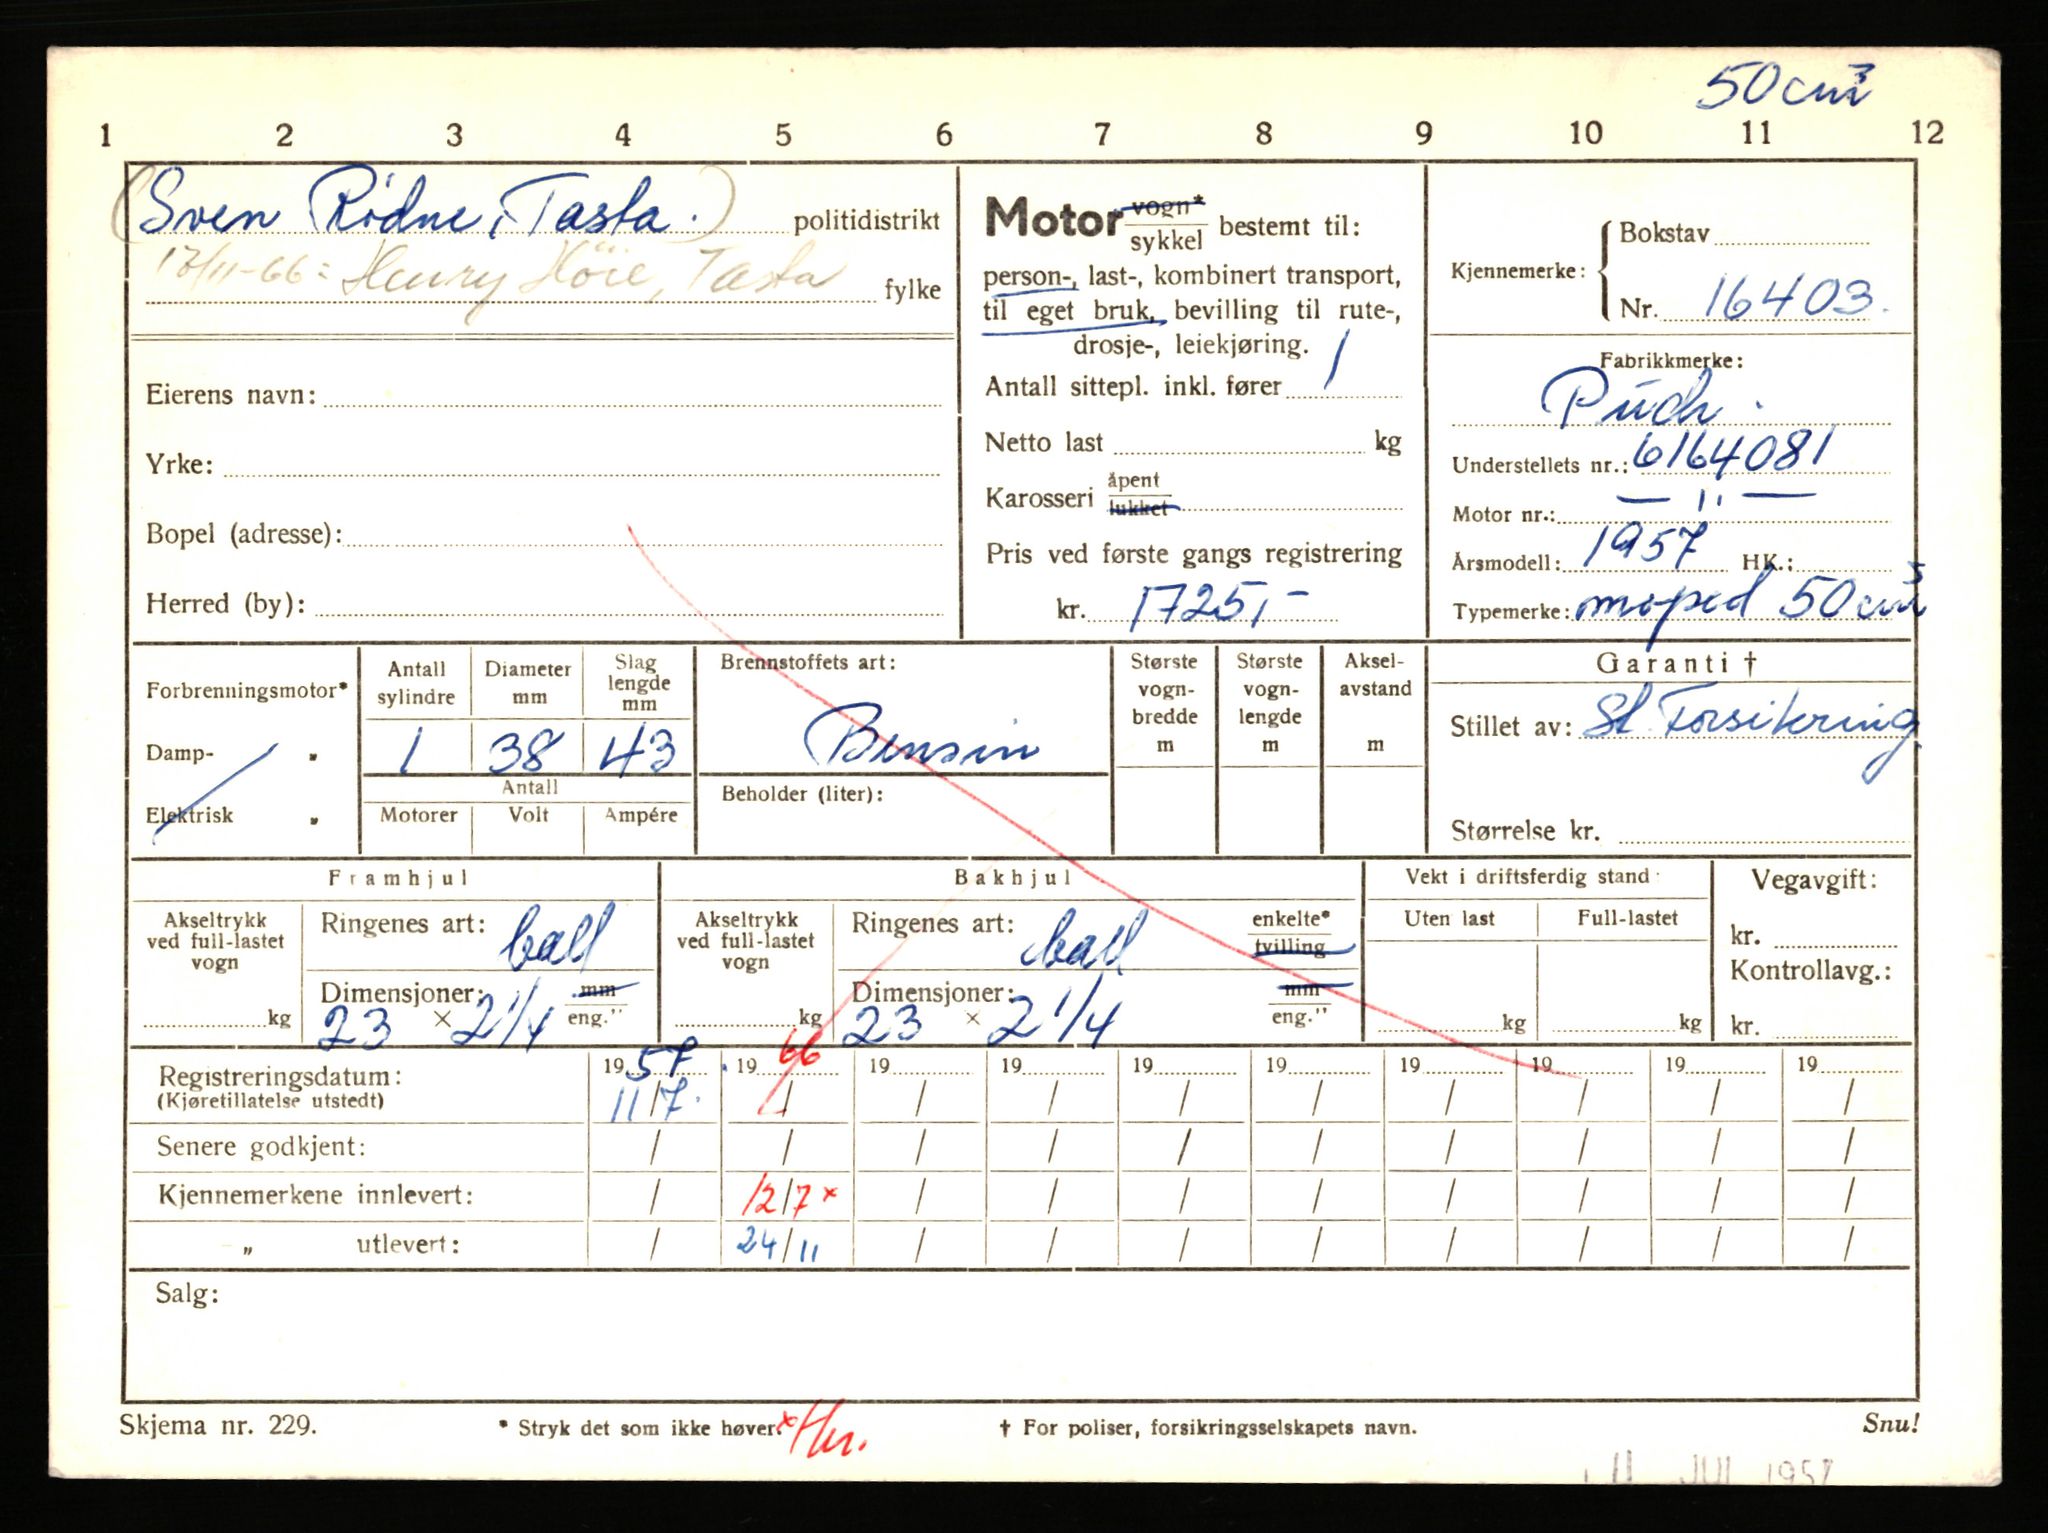 50 cm³
1 2 3 4 5 6 7 8 9 10 11 12
(Sven Rødne, Tasta.) politidistrikt
17/11-66: Henry Høie, Tasta fylke
Eierens navn:
Yrke:
Bopel (adresse):
Herred (by):
Motor vogn* / sykkel bestemt til:
person-, last-, kombinert transport,
til eget bruk, bevilling til rute-,
drosje-, leiekjøring.
Antall sittepl. inkl. fører 1
Netto last kg
Karosseri åpent / lukket
Pris ved første gangs registrering
kr. 1725,-
Kjennemerke: Bokstav
Nr. 16403.
Fabrikkmerke:
Puch.
Understellets nr.: 6164081
Motor nr.: — " —
Årsmodell: 1957 HK.:
Typemerke: moped 50 cm³
Forbrenningsmotor*
Damp- „
Elektrisk „
Antall sylindre
1
Diameter mm
38
Slag lengde mm
43
Antall
Motorer Volt Ampére
Brennstoffets art:
Bensin
Beholder (liter):
Største vogn- bredde m
Største vogn- lengde m
Aksel- avstand m
Garanti †
Stillet av: St. Forsikring
Størrelse kr.
Framhjul
Akseltrykk ved full-lastet vogn
kg
Ringenes art: ball
Dimensjoner: mm / eng."
23 × 2 1/4
Bakhjul
Akseltrykk ved full-lastet vogn
kg
Ringenes art: ball enkelte* / tvilling
Dimensjoner: mm / eng."
23 × 2 1/4
Vekt i driftsferdig stand:
Uten last Full-lastet
kg kg
Vegavgift:
kr.
Kontrollavg.:
kr.
19 57 19 66 19 19 19 19 19 19 19 19
Registreringsdatum: 11/7. / / / / / / / / /
(Kjøretillatelse utstedt)
Senere godkjent: / / / / / / / / / /
Kjennemerkene innlevert: / 12/7 × / / / / / / / /
„ utlevert: / 24/11 / / / / / / / /
Salg:
Skjema nr. 229. * Stryk det som ikke høver. † For poliser, forsikringsselskapets navn. Snu!
11 JUL 1957